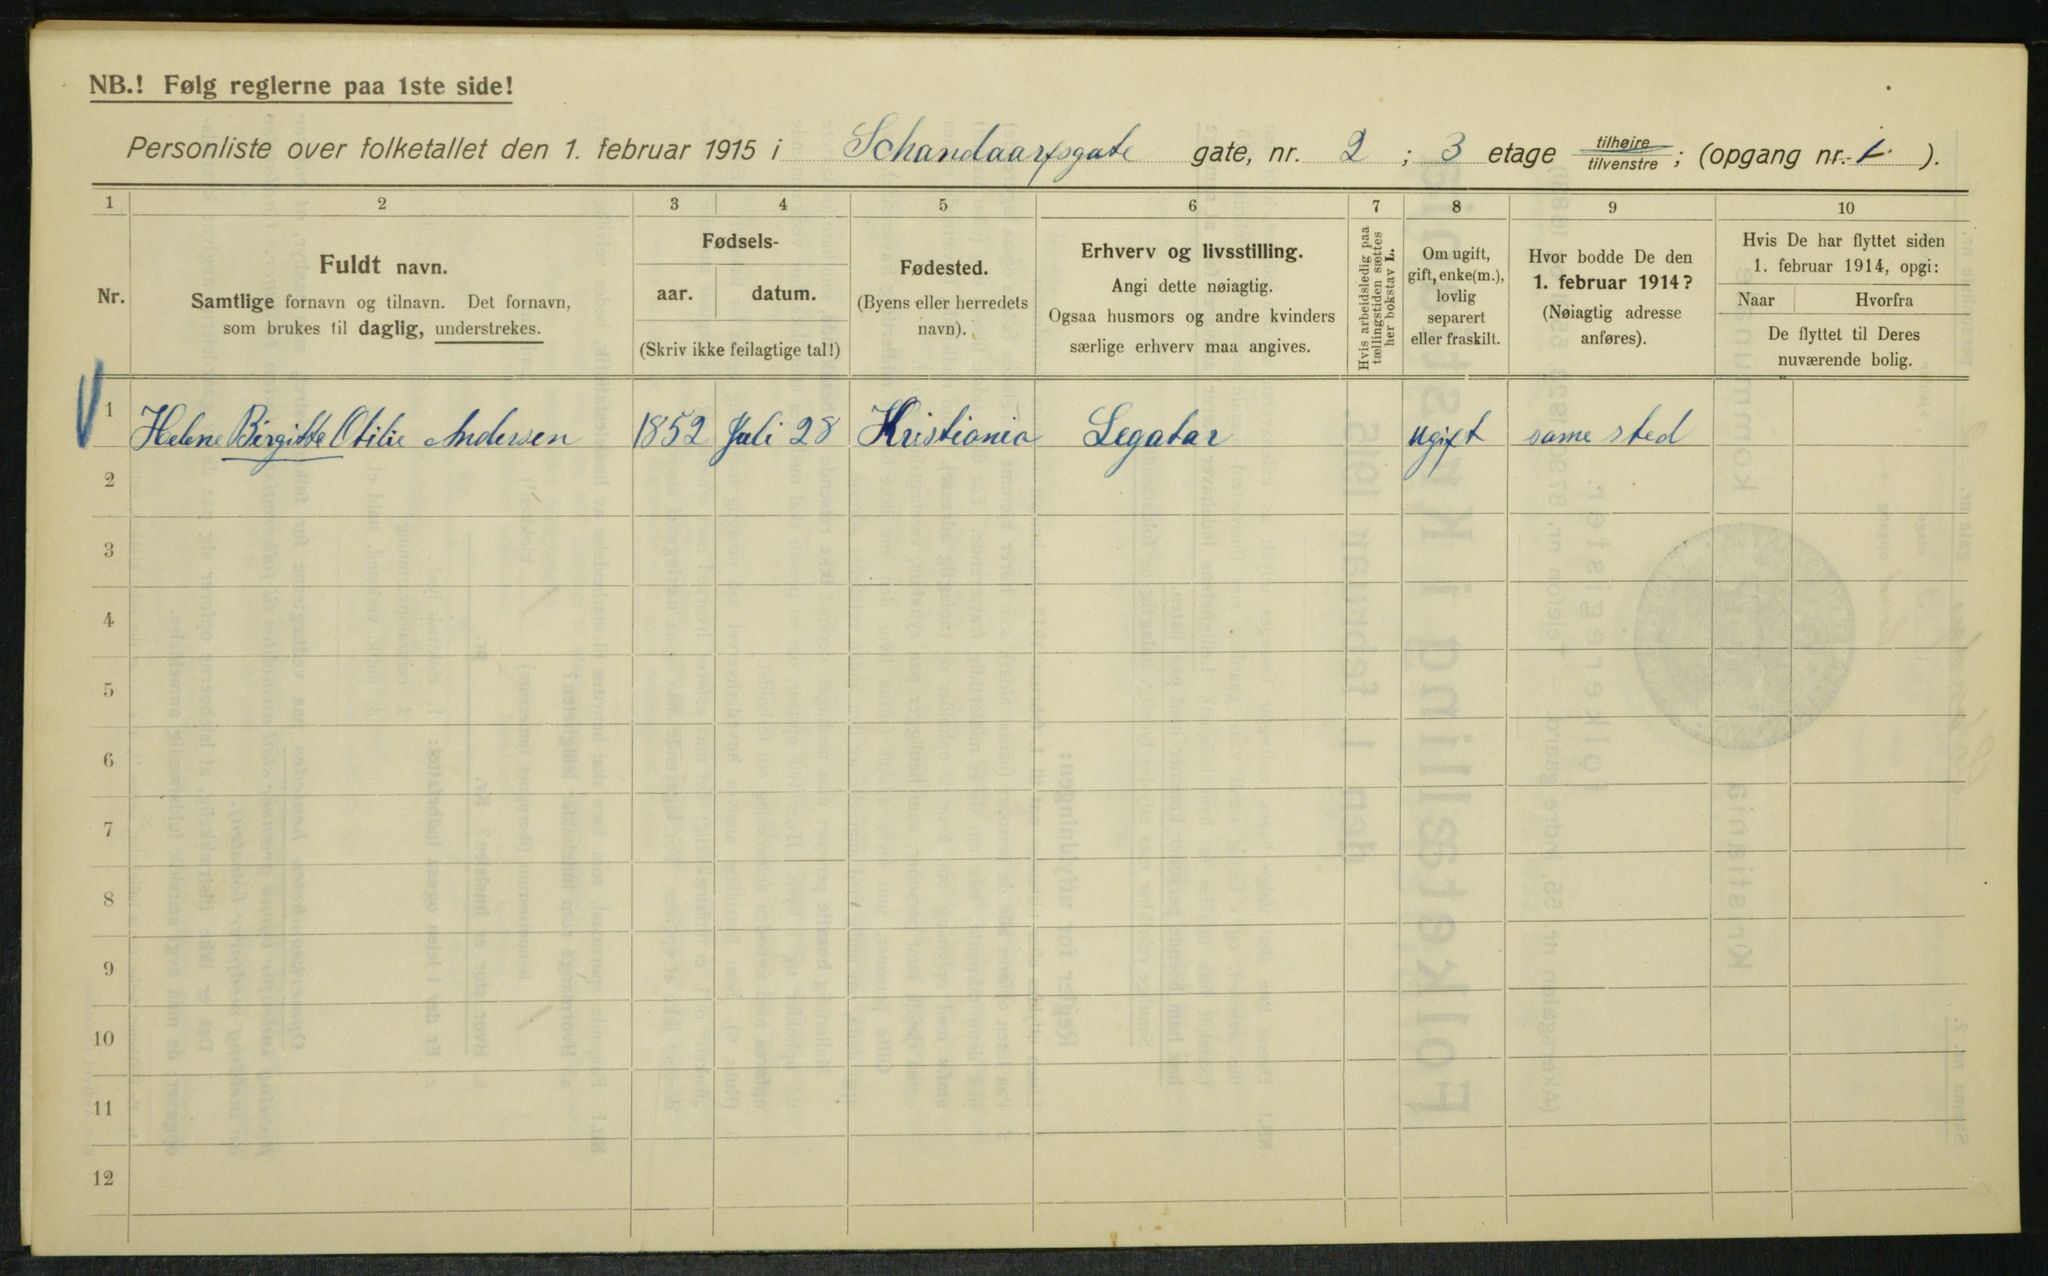 NB.! Følg reglerne paa 1ste side!
Personliste over folketallet den 1. februar 1915 i Schandaarfsgate gate, nr. 2 ; 3 etage tilhøire tilvenstre ; (opgang nr. 1. ).
1 2 3 4 5 6 7 8 9 10
Nr.
Fuldt navn.
Samtlige fornavn og tilnavn. Det fornavn,
som brukes til daglig, understrekes.
Fødsels-
aar. datum.
(Skriv ikke feilagtige tal!)
Fødested.
(Byens eller herredets
navn).
Erhverv og livsstilling.
Angi dette nøiagtig.
Ogsaa husmors og andre kvinders
særlige erhverv maa angives.
Hvis arbeidsledig paa
tællingstiden sættes
her bokstav L.
Om ugift,
gift, enke(m.),
lovlig
separert
eller fraskilt.
Hvor bodde De den
1. februar 1914?
(Nøiagtig adresse
anføres).
Hvis De har flyttet siden
1. februar 1914, opgi:
Naar Hvorfra
De flyttet til Deres
nuværende bolig.
1 Helene Birgitte Otilie Andersen 1852 Juli 28 Kristiania Legatar ugift same sted
2
3
4
5
6
7
8
9
10
11
12